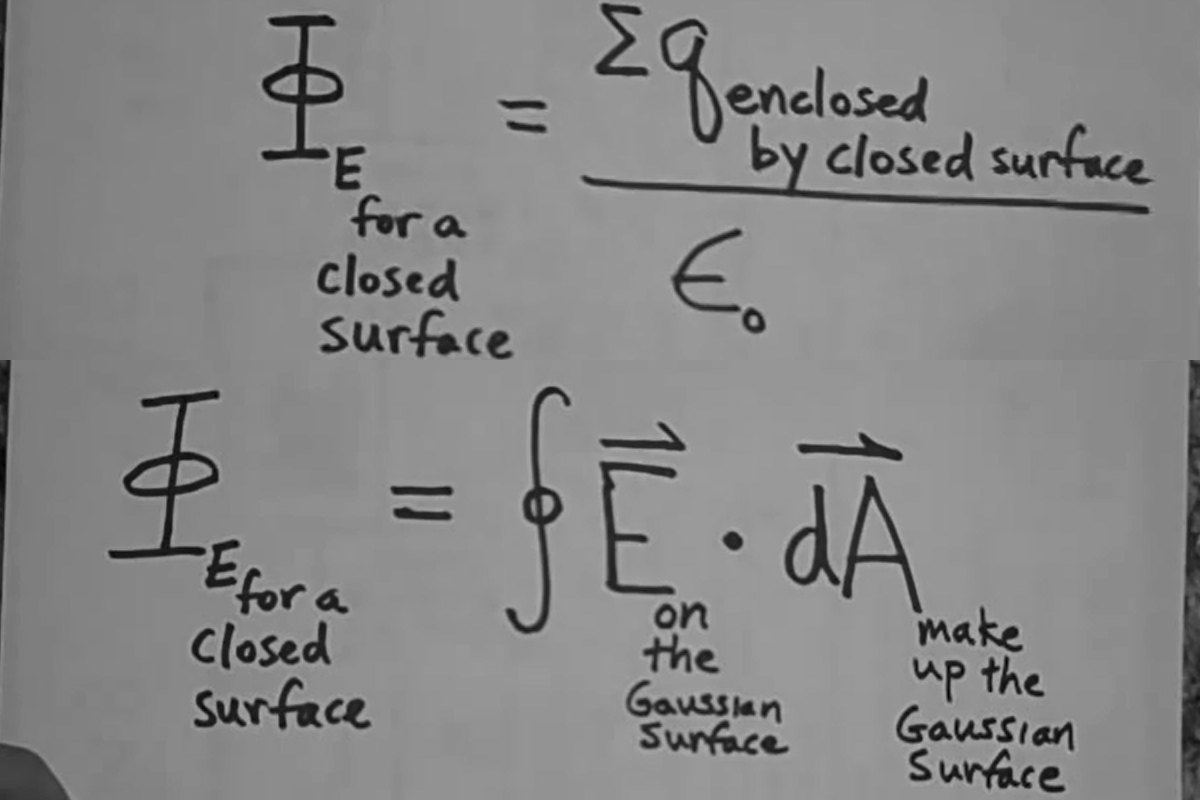 Φ_E for a closed surface = Σq enclosed by closed surface / ϵ₀
Φ_E for a closed surface = ∮ E⃗ on the Gaussian Surface · dA⃗ make up the Gaussian Surface